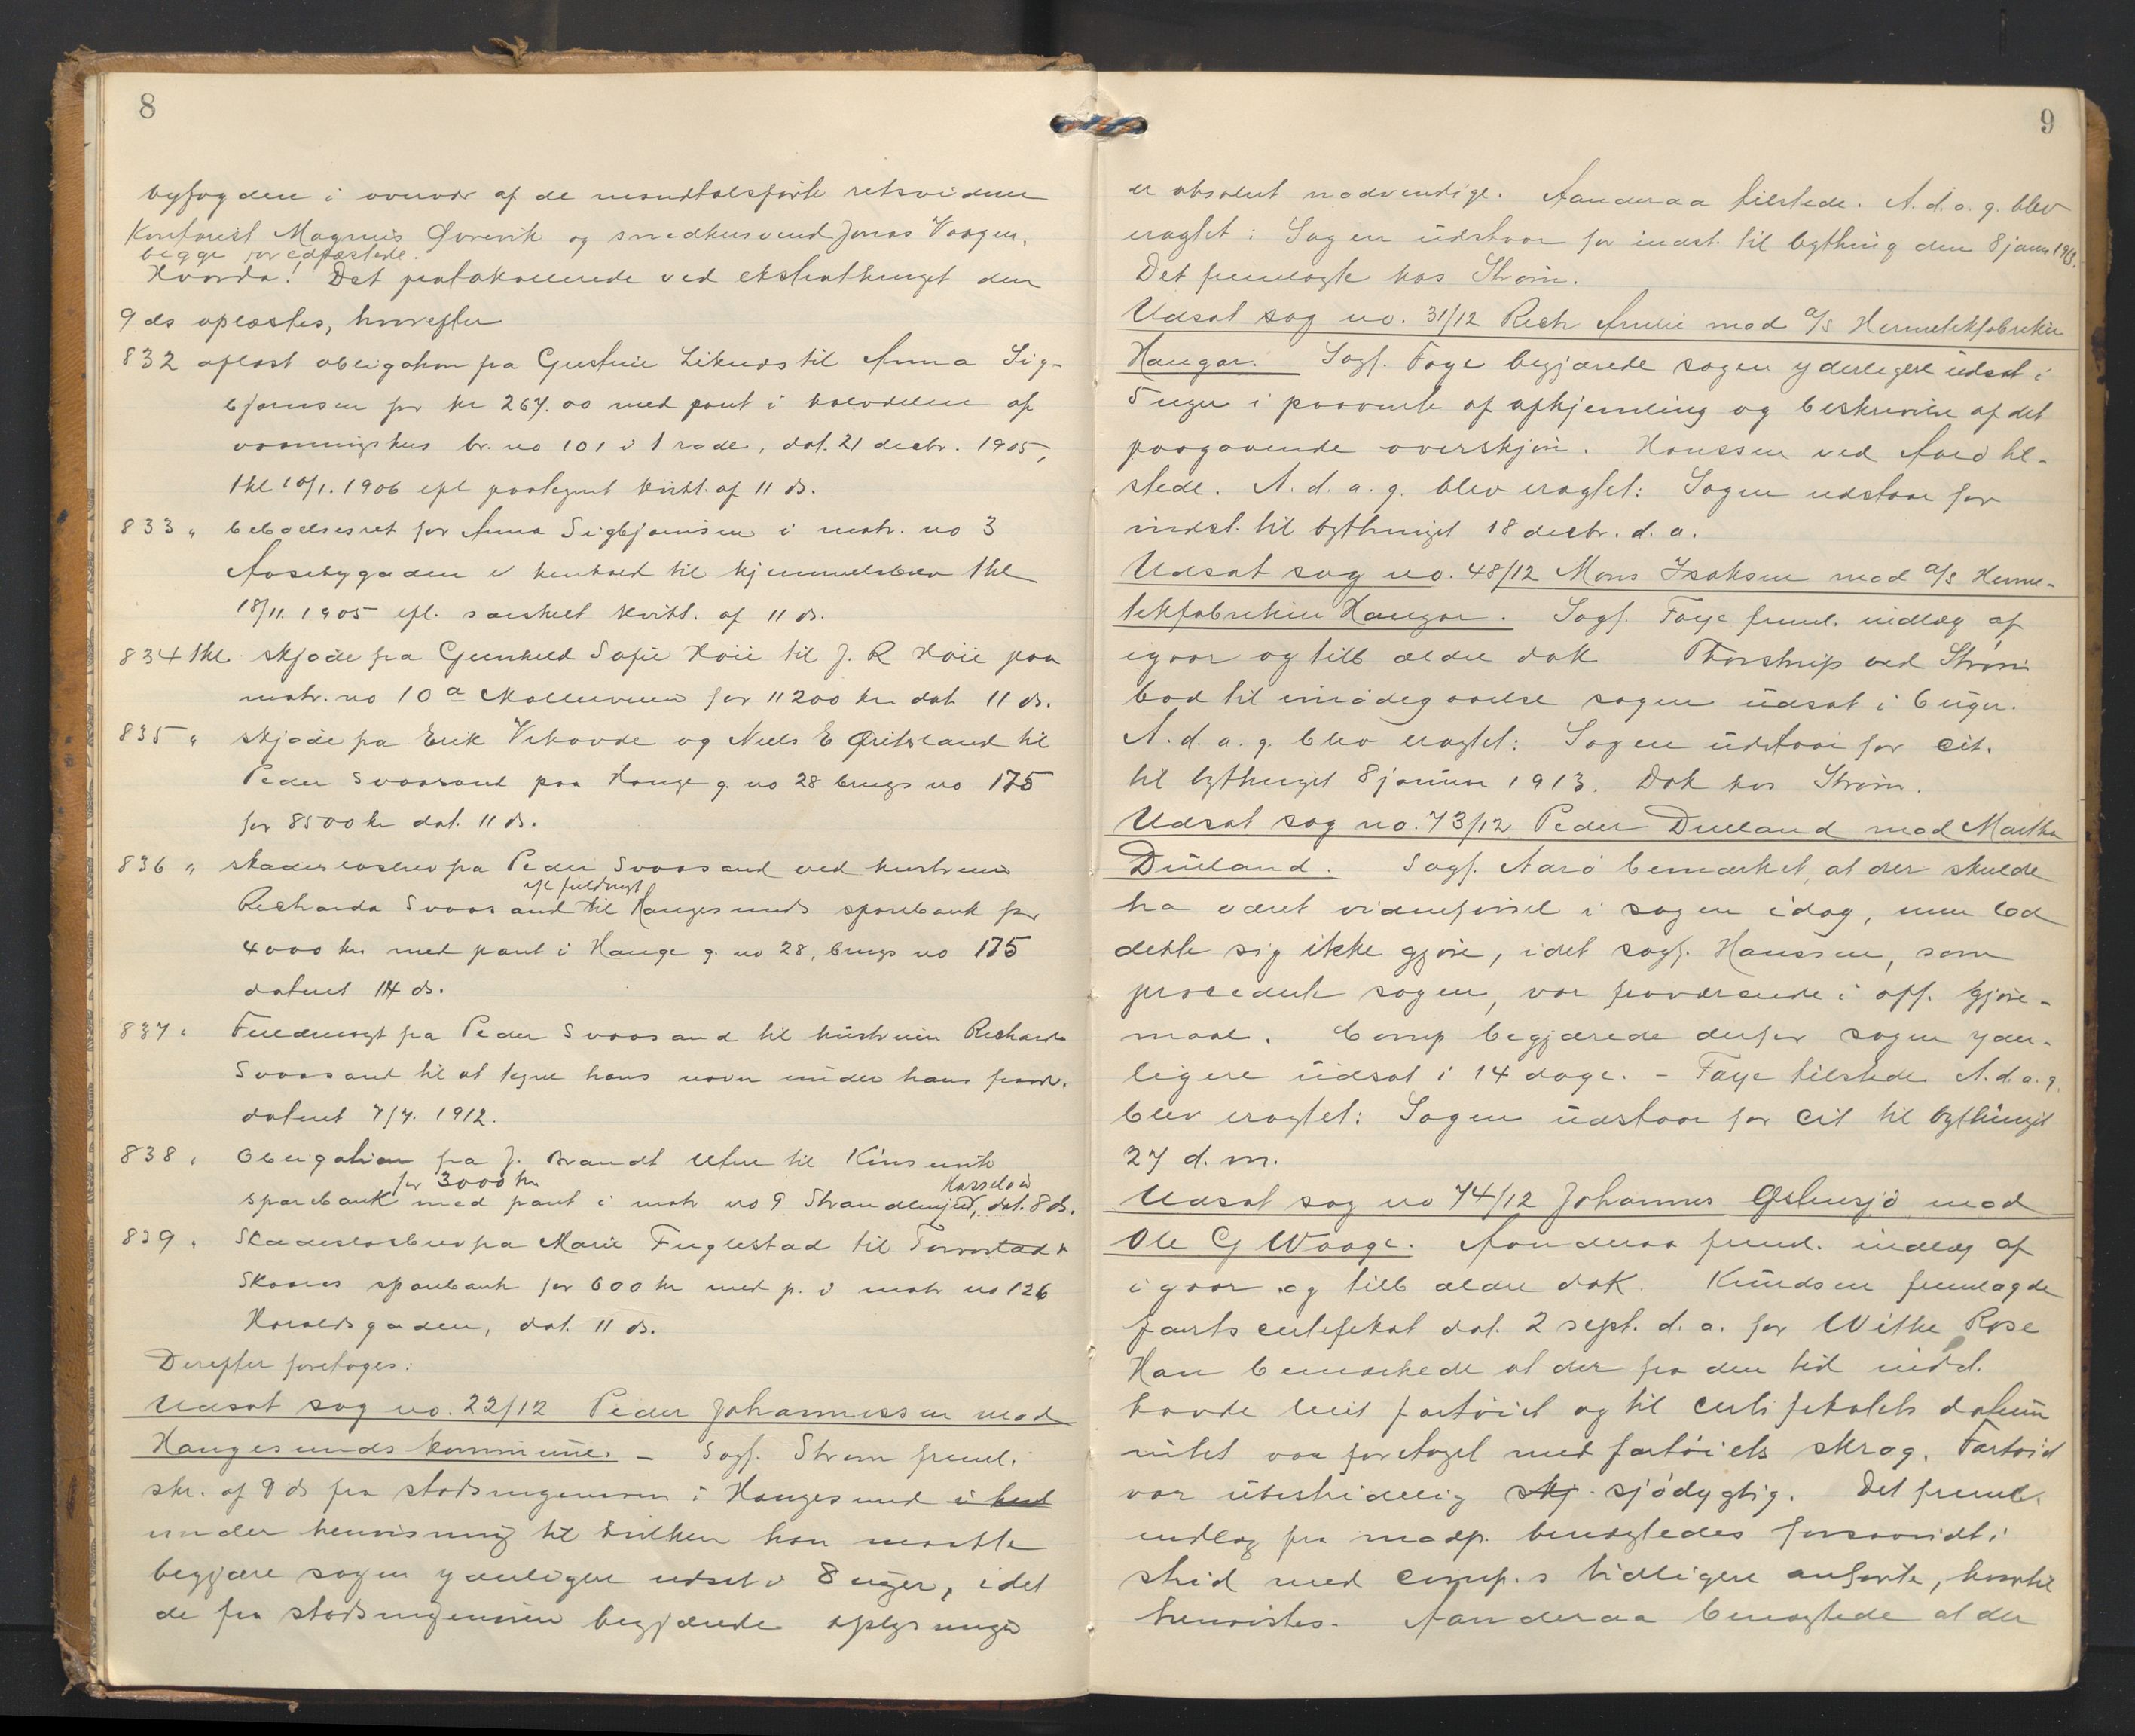 8
byfogden i overvær af de mandtalsførte retsvidner
Kontorist Magnus Qvrevik og smedkusvend Jonas Vaagen,
begge for edfæstede.
Hvorda! Det protokollerede ved ekstrathinget den
9 ds oplæstes, hvorefter
832 aflæst obligation fra Gustine Liknes til Anna Sig-
bjørnsen for kr 267.00 med pant i halvdelen af
vaaningshus br. no 101 i 1 rode, dat. 21 decbr. 1905,
thl 10/1. 1906 efl paategnet kvitt. af 11 ds.
833 " beboelsesret for Anna Sigbjørnsen i matr. no 3
Aasebygaden i henhold til hjemmelsbrev thl
18/11. 1905 efl. særskilt kvitt. af 11 ds.
834 thl skjøde fra Gunhild Sofie Høie til J. R Høie paa
matr. no 10 a Møllerveien for 11200 kr dat 11 ds.
835 " skjøde fra Erik Vihovde og Niels E Øritsland til
Peder Svaasand paa Hauge g. no 28 brugs no 175
for 8500 kr dat. 11 ds.
836 " skadesløsbrev fra Peder Svaasand ved hustruen
efl fuldmagt
Richarda Svaasand til Haugesunds sparebank for
4000 kr med pant i Hauge g. no 28, brugs no 175
dateret 14 ds.
837 " Fuldmagt fra Peder Svaasand til hustruen Richarda
Svaasand til at tegne hans navn under hans fravær.
dateret 7/7. 1912.
838 " Obligation fra J. Brandt Utne til Kinservik
for 3000 kr Hasseløen
sparebank med pant i matr no 9 Strandengen, dat. 8 ds.
839 " Skadesløsbrev fra Marie Fuglestad til Torvestad &
Skaares sparebank for 600 kr med p. i matr no 126
Haraldsgaden, dat. 11 ds.
Derefter foretoges:
Udsat sag no. 22/12 Peder Johannessen mod
Haugesunds kommune. - Sagf. Strøm freml.
skr. af 9 ds fra stadsingeniøren i Haugesund i hen
under henvisning til hvilken han maatte
begjære sagen yderligere udsat i 8 uger, idet
de fra stadsingeniøren begjærede oplysninger
9
er absolut nødvendige. Aanderaa tilstede. A. d. a. g. blev
eragtet: Sagen udstaar for indst. til bything den 8 januar 1913.
Det fremlagte hos Strøm.
Udsat sag no. 31/12 Rich Amlie mod a/s Hermetikfabrikken
Haugar. Sagf. Faye begjærede sagen yderligere udsat i
5 uger i paavente af afhjemling og beskrivelse af det
paagaaende overskjøn. Hanssen ved Aarø til-
stede. A. d. a. g. blev eragtet: Sagen udstaar for
indst. til bythinget 18 decbr. d. a.
Udsat sag no. 48/12 Mons Isaksen mod a/s Herme-
tikfabrikken Haugar. Sagf. Faye freml. indlæg af
igaar og tilb ældre dok Thorstrup ved Strøm
bad til imødegaaelse sagen udsat i 6 uger.
A. d. a. g. blev eragtet: Sagen udstaar for cit.
til bythinget 8 januar 1913. Dok hos Strøm.
Udsat sag no. 73/12 Peder Dueland mod Martha
Dueland. Sagf. Aarø bemærket, at der skulde
ha været vidneførsel i sagen idag, men lod
dette sig ikke gjøre, idet sagf. Hanssen, som
procederte sagen, var fraværende i off. gjøre-
maal. Comp begjærede derfor sagen yder-
ligere udsat i 14 dage. - Faye tilstede A. d. a. g.
blev eragtet: Sagen udstaar for cit til bythinget
27 d. m.
Udsat sag no 74/12 Johannes Østensjø mod
Ole G Waage. Aanderaa freml. indlæg af
igaar og tilb ældre dok. Knudsen fremlagde
fartscertifikat dat. 2 sept. d. a. for Withe Rose
Han bemærkede at der fra den tid indst.
havde leiet fartøiet og til certifikatets datum
intet var foretaget med fartøiets skrog. Fartøiet
var ubestridelig skj sjødygtig. Det freml.
indlæg fra modp. benægtedes forsaavidt i
strid med comp.s tidligere anførte, hvortil
henvistes. Aanderaa benægtede at der